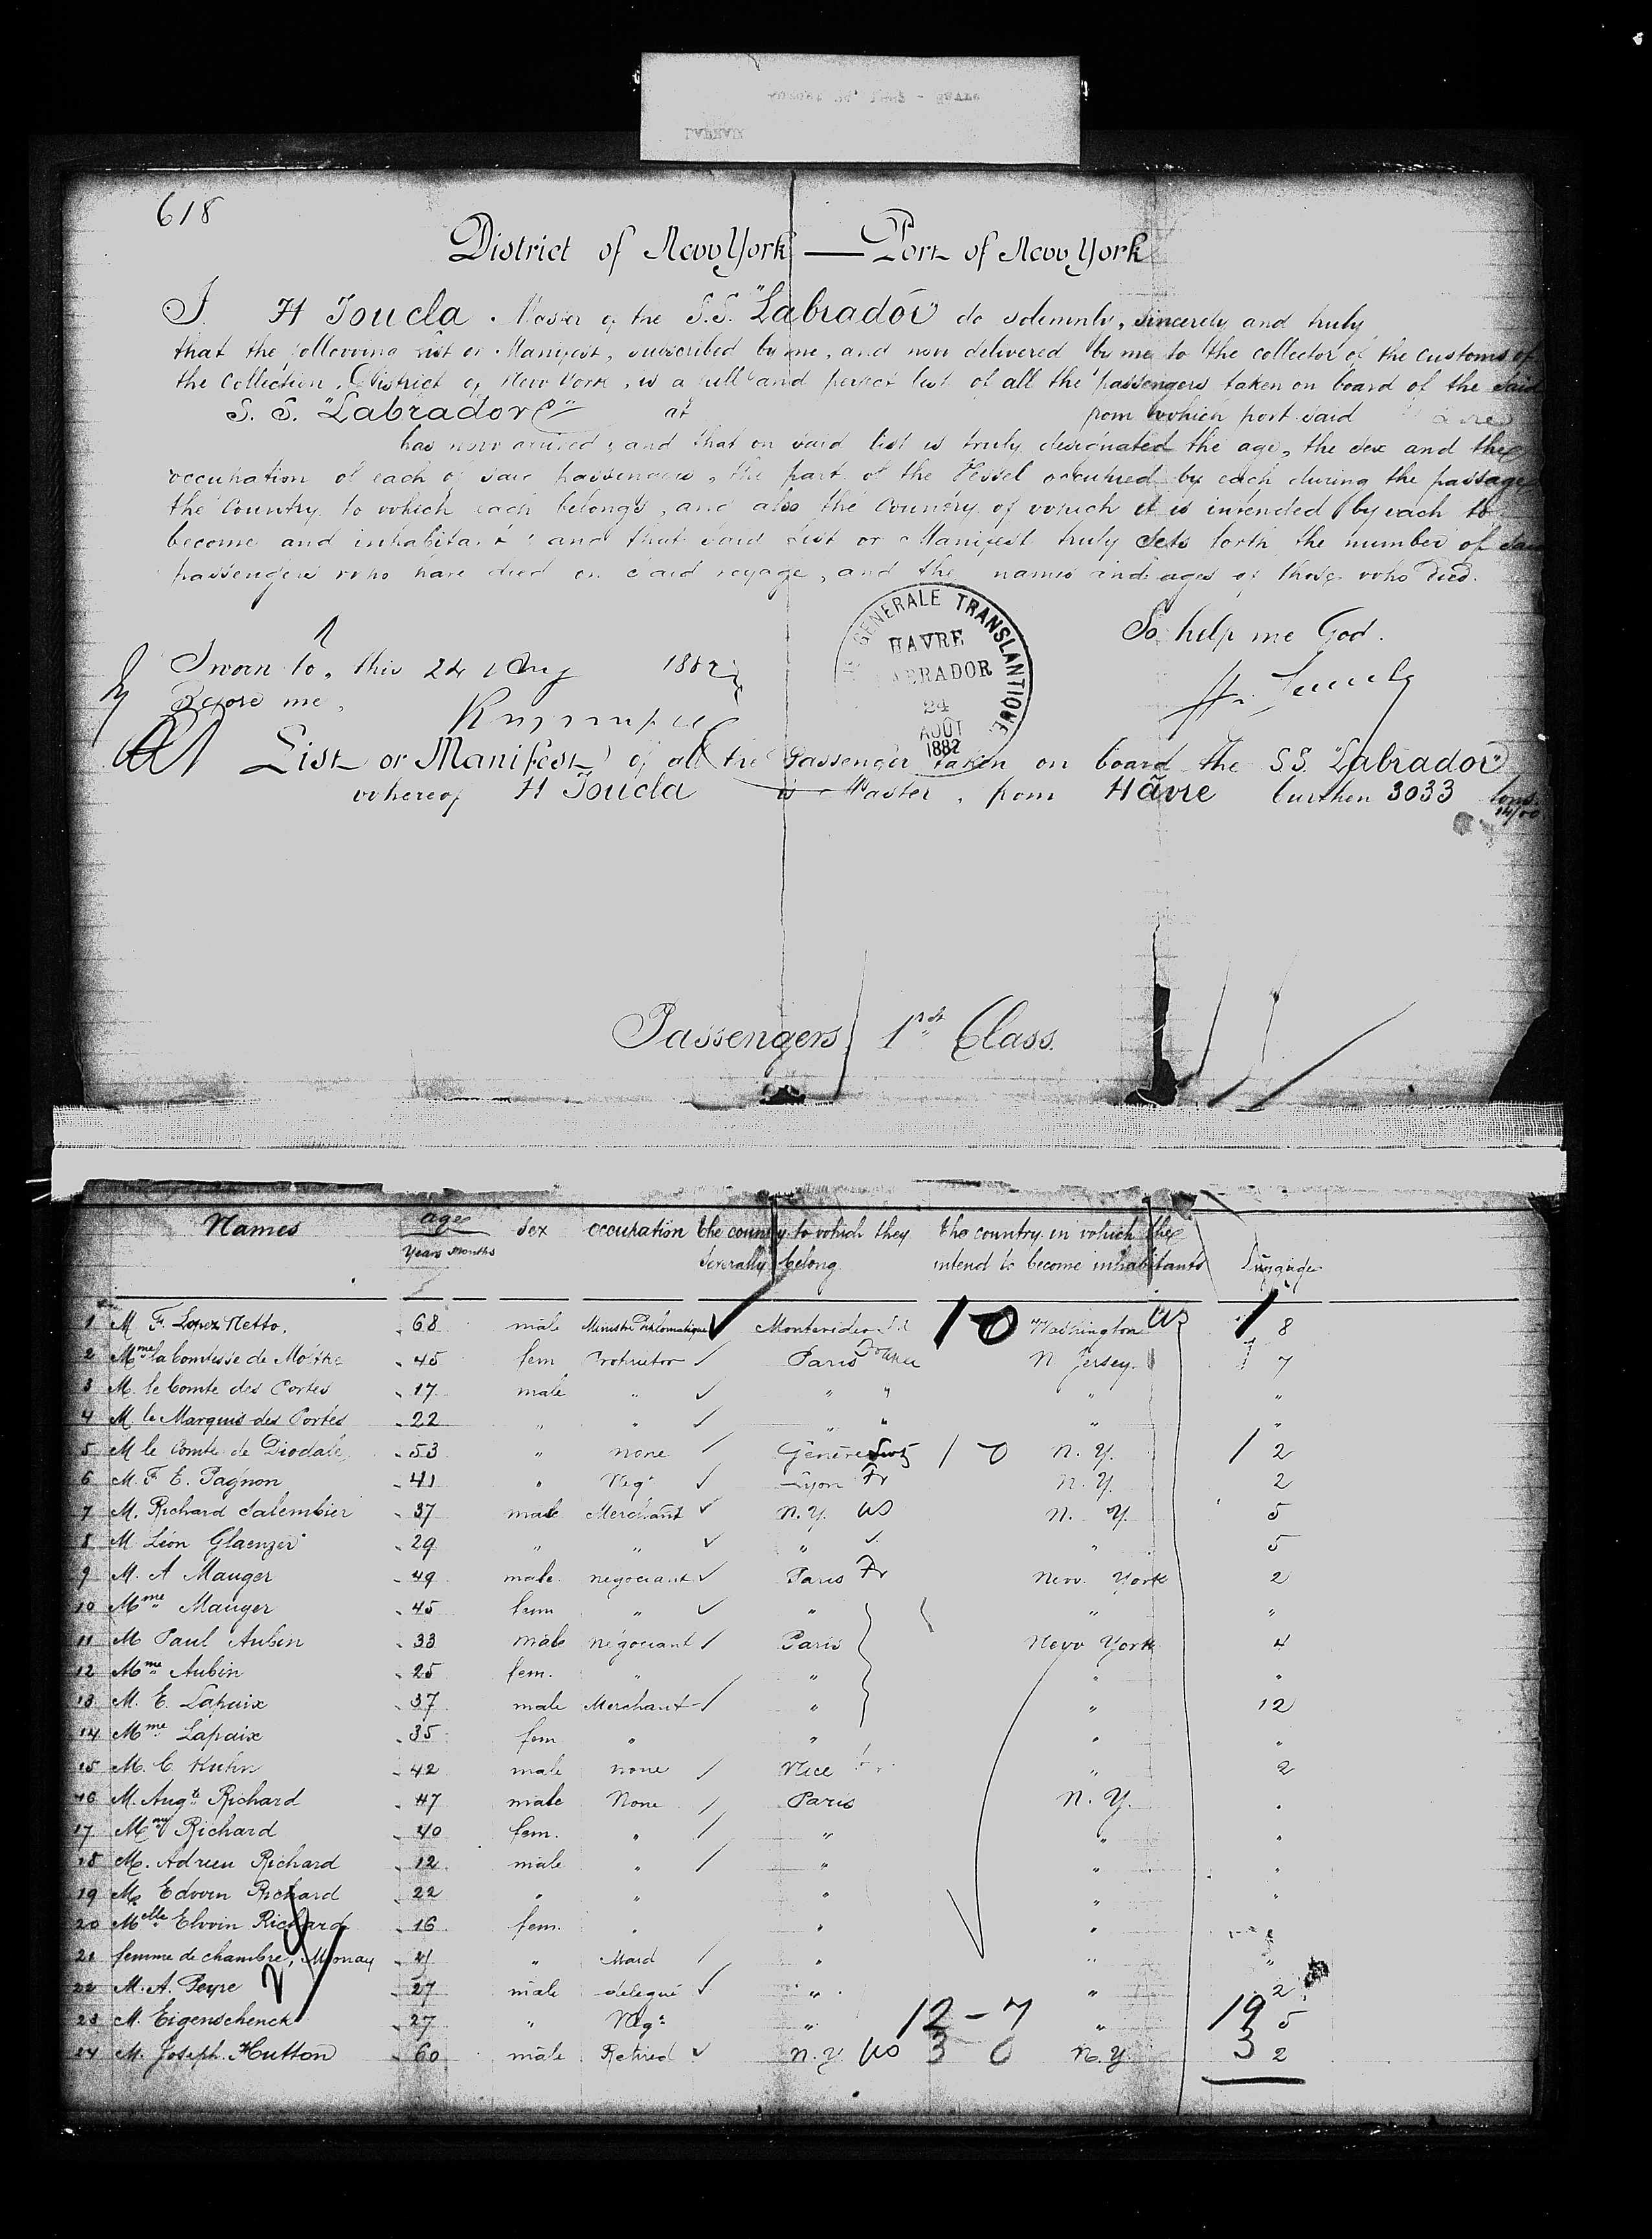 618
District of New York — Port of New York
I H Joucla Master of the S.S. "Labrador" do solemnly, sincerely and truly
that the following List or Manifest, subscribed by me, and now delivered by me to the collector of the customs of
the Collection District of New York, is a full and perfect list of all the passengers taken on board of the said
S. S. "Labrador" at from which port said
has now arrived; and that on said list is truly designated the age, the sex and the
occupation of each of said passengers, the part of the Vessel occupied by each during the passage
the Country to which each belongs, and also the Country of which it is intended by each to
become and inhabitant; and that said List or Manifest truly sets forth the number of said
passengers who have died on said voyage, and the names and ages of those who died.
So help me God.
Sworn to, this 24 Aug 1882
Before me,
GENERALE TRANSLANTIQUE
HAVRE
BRADOR
24
AOÛT
1882
List or Manifest of all the Passenger taken on board the S.S. "Labrador"
whereof H Joucla is Master, from Hâvre burthen 3033 tons
Passengers 1st Class.
Names age sex occupation the country to which they the country in which they Luggage
Years Months severally belong intend to become inhabitants
1 M F. Lopez Netto. 68 male Ministre Diplomatique Montevideo 10 Washington US 1 8
2 Mme la Comtesse de Moltke 45 fem Proprietor Paris France N. Jersey 7
3 M. le Comte des Portes 17 male " " " " "
4 M le Marquis des Portes 22 " " " " " "
5 M le Comte de Diodate 53 " none Genève Switz 1 0 N. Y. 1 2
6 M. F. E. Pagnon 41 " Negt Lyon Fr N. Y. 2
7 M. Richard Salembier 37 male Merchant N. Y. US N. Y. 5
8 M Léon Glaenzer 29 " " " " 5
9 M. A Mauger 49 male negociant Paris Fr New York 2
10 Mme Mauger 45 fem " " " "
11 M Paul Aubin 33 male négociant Paris New York 4
12 Mme Aubin 25 fem. " " " "
13 M. E. Lapaix 37 male Merchant " " 12
14 Mme Lapaix 35 fem " " " "
15 M. C. Kuhn 42 male none Nice " 2
16 M. Augte Richard 47 male None Paris N. Y. "
17 Mme Richard 40 fem. " " " "
18 M. Adrien Richard 12 male " " " "
19 M. Edwin Richard 22 " " " " "
20 Melle Elwin Richard 16 fem. " " "
21 femme de chambre, 41 " Maid " " "
22 M. A. Peyre 27 male délégué " " 2
23 M. Eigenschenck 27 " Negt " 12 - 7 " 19 5
24 M. Joseph Hutton 60 male Retired N. Y. US 3 0 N. Y. 3 2